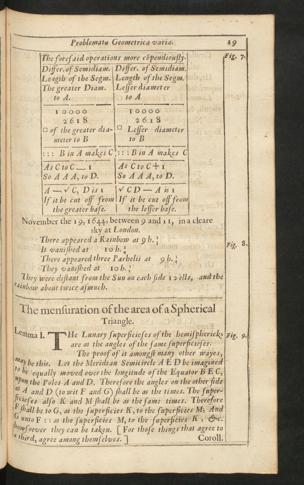 Problemata Geometrica varia. 19
The foresaid operations more cōpendiously.
Differ. of Semidiam. Differ. of Semidiam.
Length of the Segm. Length of the Segm.
The greater Diam. Lesser diameter
to A. to A
10000 10000
2618 2618
□ of the greater dia- □ Lesser diameter
meter to B to B
:::: B in A makes C :::: B in A makes C
As C to C — 1 As C to C + 1
So A A A, to D. So A A A, to D.
A — √ C, D is 1 √ C D — A is 1
If it be cut off from If it be cut off from
the greater base. the lesser base.
Fig. 7.
November the 19, 1644, between 9 and 11, in a cleare
sky at London.
There appeared a Rainbow at 9 h.
It vanished at 10 h.
There appeared three Parhelii at 9 h.
They vanished at 10 h.
They were distant from the Sun on each side 12 ells, and the
rainbow about twice asmuch.
Fig. 8.
The mensuration of the area of a Spherical
Triangle.
Lemma 1. THe Lunary superficieses of the hemispherick,
are at the angles of the same superficieses.
The proof of it amongst many other wayes,
may be this. Let the Meridian Semicircle A E D be imagined
to be equally moved over the longitude of the Equator B E C,
upon the Poles A and D. Therefore the angles on the other side
at A and D (to wit F and G) shall be as the times. The super-
ficieses also K and M shall be as the same times. Therefore
F shall be to G, as the superficies K, to the superficies M; And
G unto F :: as the superficies M, to the superficies K, &c.
howsoever they can be taken. [ For those things that agree to
a third, agree among themselves. ] Coroll.
Fig. 9.